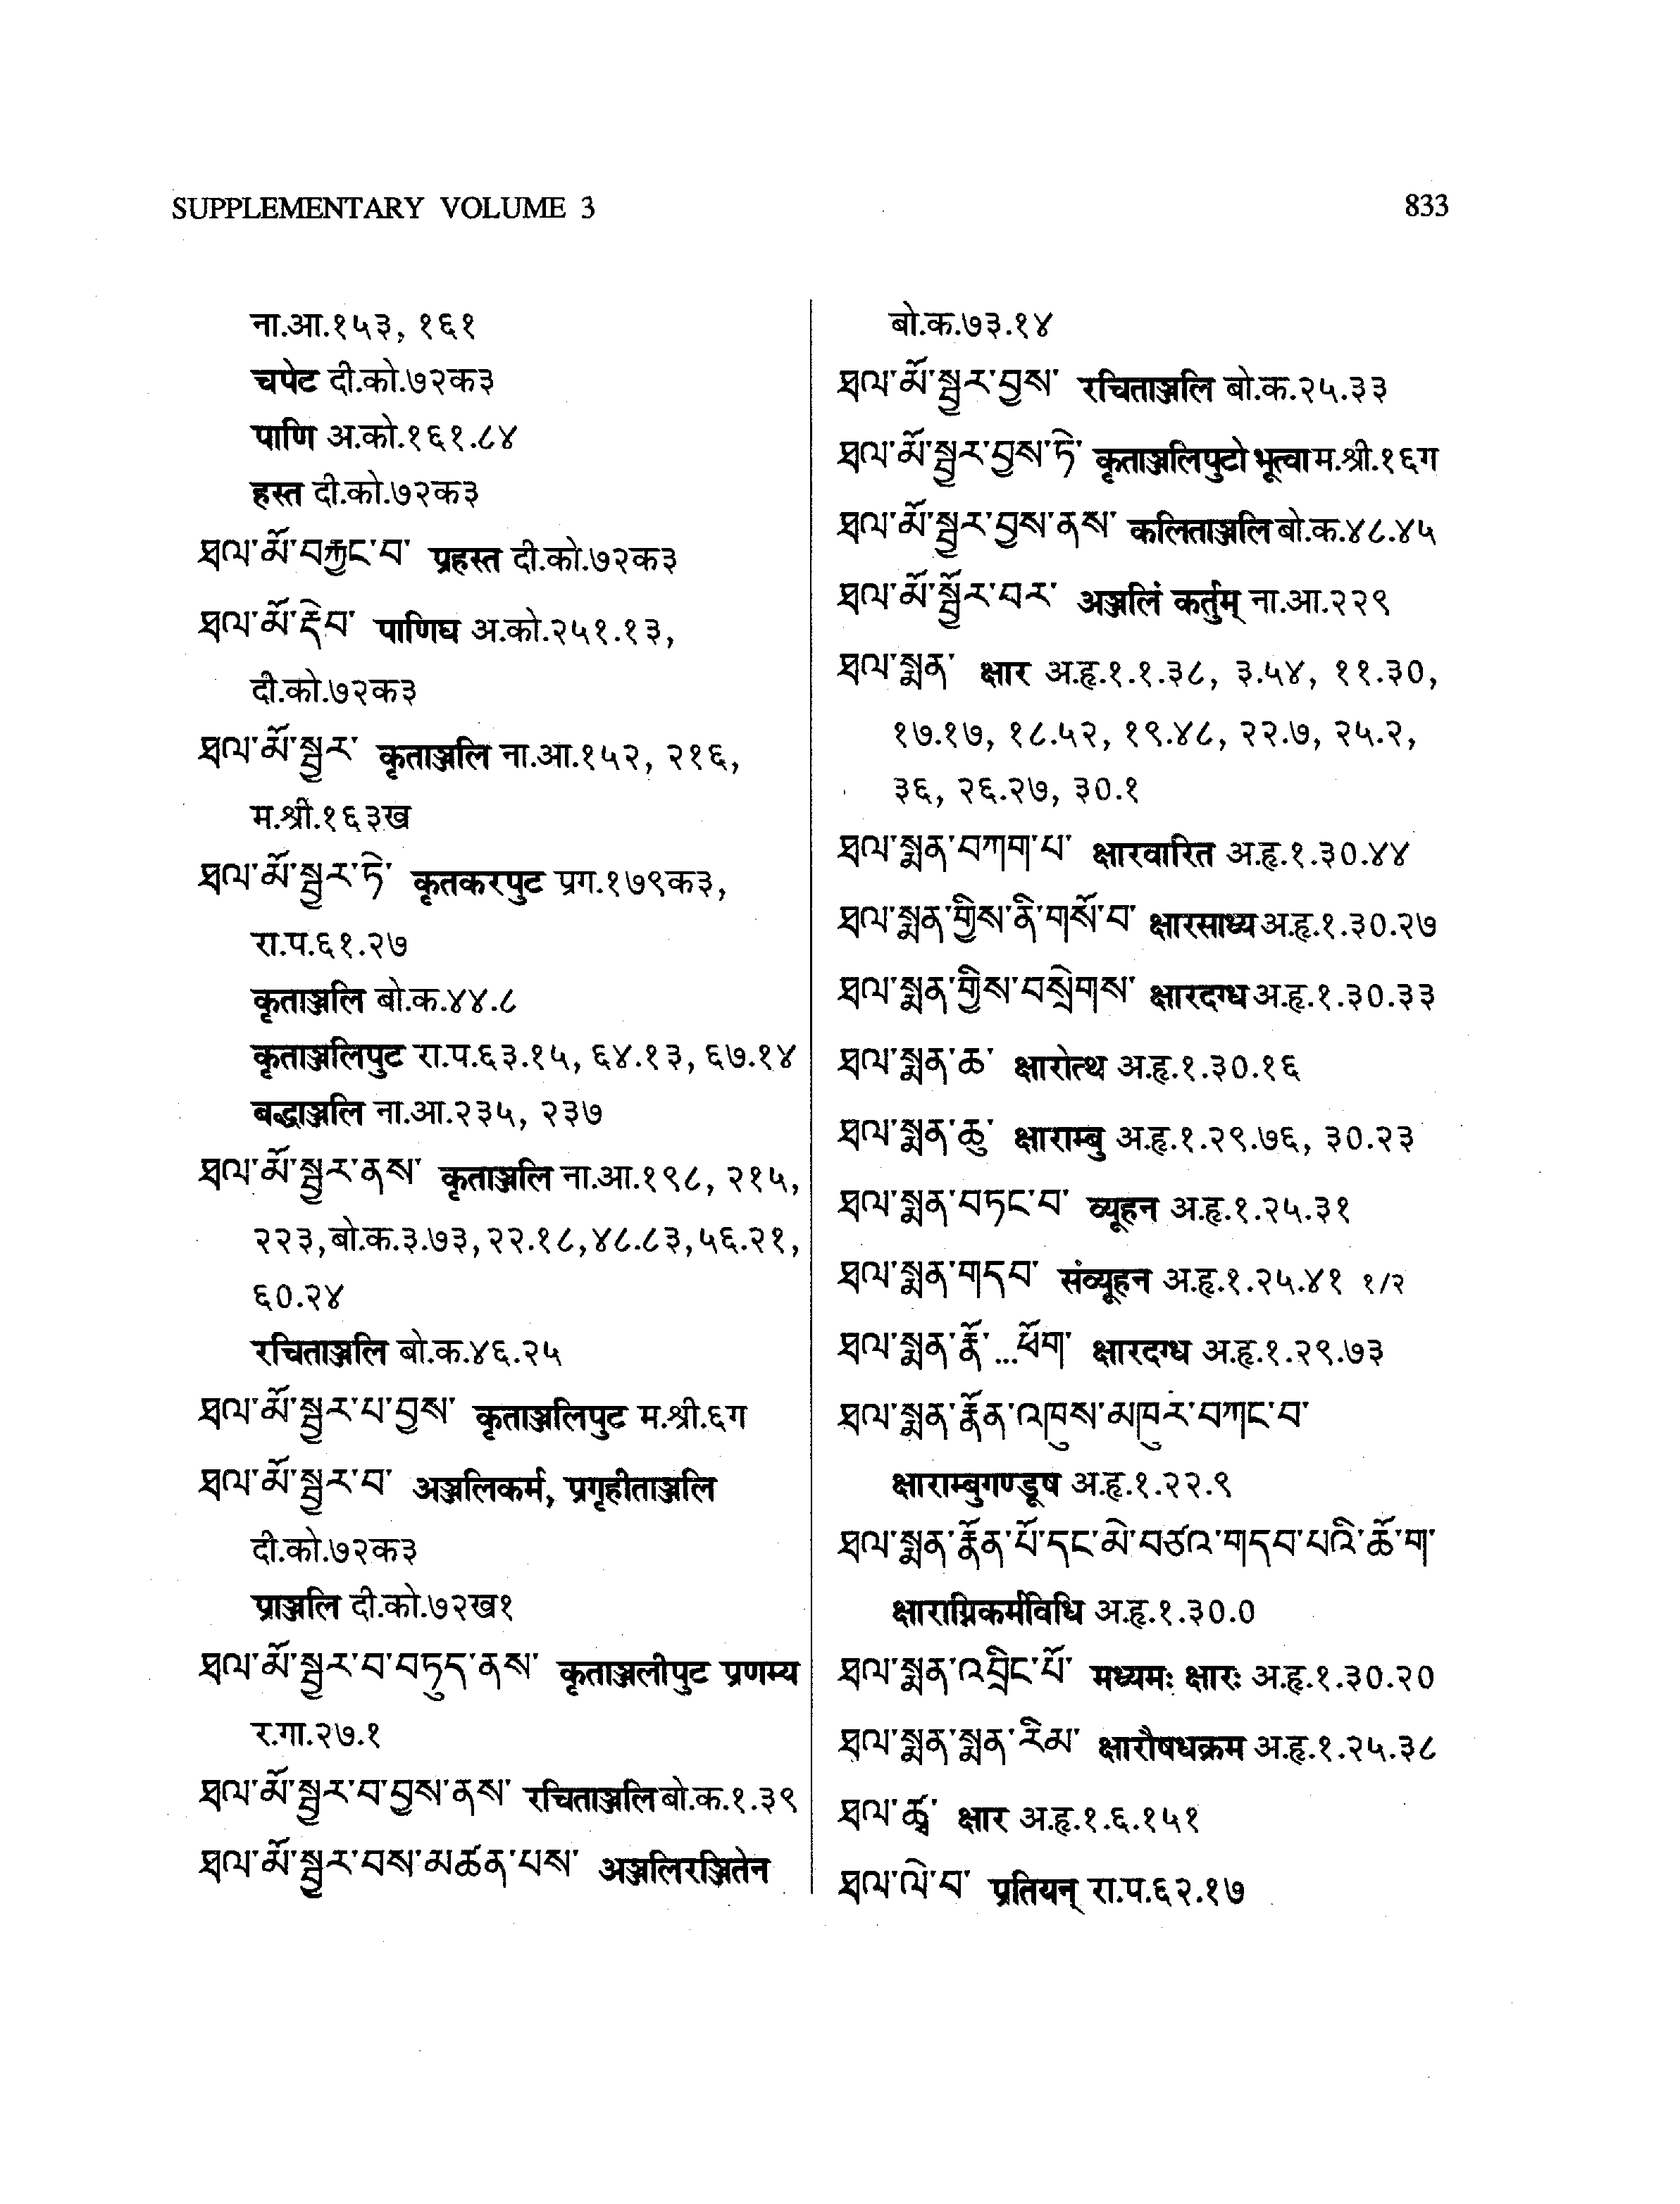 SUPPLEMENTARY VOLUME 3
833
ना.आ.१५३, १६१
चपेट दी.को.७२क३
पाणि अ.को.१६१.८४
हस्त दी.को.७२क३
ཐལ་མོ་བརྐྱང་བ་ प्रहस्त दी.को.७२क३
ཐལ་མོ་རྡེབ་ पाणिघ अ.को.२५१.१३,
दी.को.७२क३
ཐལ་མོ་སྦྱར་ कृताञ्जलि ना.आ.१५२, २१६,
म.श्री.१६३ख
ཐལ་མོ་སྦྱར་ཏེ་ कृतकरपुट प्रग.१७९क३,
रा.प.६१.२७
कृताञ्जलि बो.क.४४.८
कृताञ्जलिपुट रा.प.६३.१५, ६४.१३, ६७.१४
बद्धाञ्जलि ना.आ.२३५, २३७
ཐལ་མོ་སྦྱར་ནས་ कृताञ्जलि ना.आ.१९८, २१५,
२२३, बो.क.३.७३, २२.१८, ४८.८३, ५६.२१,
६०.२४
रचिताञ्जलि बो.क.४६.२५
ཐལ་མོ་སྦྱར་པ་བྱས་ कृताञ्जलिपुट म.श्री.६ग
ཐལ་མོ་སྦྱར་བ་ अञ्जलिकर्म, प्रगृहीताञ्जलि
दी.को.७२क३
प्राञ्जलि दी.को.७२ख१
ཐལ་མོ་སྦྱར་བ་བཏུད་ནས་ कृताञ्जलीपुट प्रणम्य
र.गा.२७.१
ཐལ་མོ་སྦྱར་བ་བྱས་ནས་ रचिताञ्जलि बो.क.१.३९
ཐལ་མོ་སྦྱར་བས་མཚན་པས་ अञ्जलिरञ्जितेन
बो.क.७३.१४
ཐལ་མོ་སྦྱར་བྱས་ रचिताञ्जलि बो.क.२५.३३
ཐལ་མོ་སྦྱར་བྱས་ཏེ་ कृताञ्जलिपुटो भूत्वा म.श्री.१६ग
ཐལ་མོ་སྦྱར་བྱས་ནས་ कलिताञ्जलि बो.क.४८.४५
ཐལ་མོ་སྦྱོར་བར་ अञ्जलिं कर्तुम् ना.आ.२२९
ཐལ་སྨན་ क्षार अ.हृ.१.१.३८, ३.५४, ११.३०,
१७.१७, १८.५२, १९.४८, २२.७, २५.२,
३६, २६.२७, ३०.१
ཐལ་སྨན་བཀག་པ་ क्षारवारित अ.हृ.१.३०.४४
ཐལ་སྨན་གྱིས་ནི་གསོ་བ་ क्षारसाध्य अ.हृ.१.३०.२७
ཐལ་སྨན་གྱིས་བསྲེགས་ क्षारदग्ध अ.हृ.१.३०.३३
ཐལ་སྨན་ཆ་ क्षारोत्थ अ.हृ.१.३०.१६
ཐལ་སྨན་ཆུ་ क्षाराम्बु अ.हृ.१.२९.७६, ३०.२३
ཐལ་སྨན་བཏང་བ་ व्यूहन अ.हृ.१.२५.३१
ཐལ་སྨན་གདབ་ संव्यूहन अ.हृ.१.२५.४१ १/२
ཐལ་སྨན་རྣོ་...ཕོག་ क्षारदग्ध अ.हृ.१.२९.७३
ཐལ་སྨན་རྣོན་འཁུས་མཁུར་བཀང་བ་
क्षाराम्बुगण्डूष अ.हृ.१.२२.९
ཐལ་སྨན་རྣོན་པོ་དང་མེ་བཙའ་གདབ་པའི་ཆོ་ག་
क्षाराग्निकर्मविधि अ.हृ.१.३०.०
ཐལ་སྨན་འབྲིང་པོ་ मध्यमः क्षारः अ.हृ.१.३०.२०
ཐལ་སྨན་སྨན་རིམ་ क्षारौषधक्रम अ.हृ.१.२५.३८
ཐལ་ཚྭ་ क्षार अ.हृ.१.६.१५१
ཐལ་ལེ་བ་ प्रतियन् रा.प.६२.१७